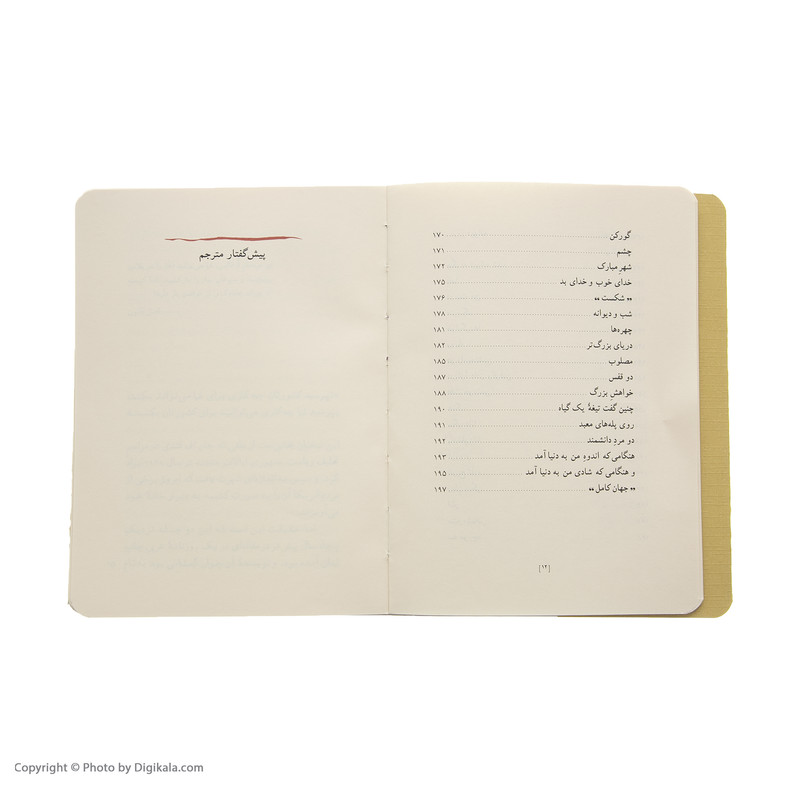 گورکن ۱۷۰
چشم ۱۷۱
شهرِ مبارک ۱۷۲
خدای خوب و خدای بد ۱۷۵
«« شکست »» ۱۷۶
شب و دیوانه ۱۷۸
چهره‌ها ۱۸۱
دریای بزرگ‌تر ۱۸۲
مصلوب ۱۸۵
دو قفس ۱۸۷
خواهشِ بزرگ ۱۸۸
چنین گفت تیغهٔ یک گیاه ۱۹۰
روی پله‌های معبد ۱۹۱
دو مردِ دانشمند ۱۹۲
هنگامی که اندوهِ من به دنیا آمد ۱۹۳
و هنگامی که شادی من به دنیا آمد ۱۹۵
«« جهان کامل »» ۱۹۷
[۱۲]
پیش‌گفتار مترجم
Copyright © Photo by Digikala.com